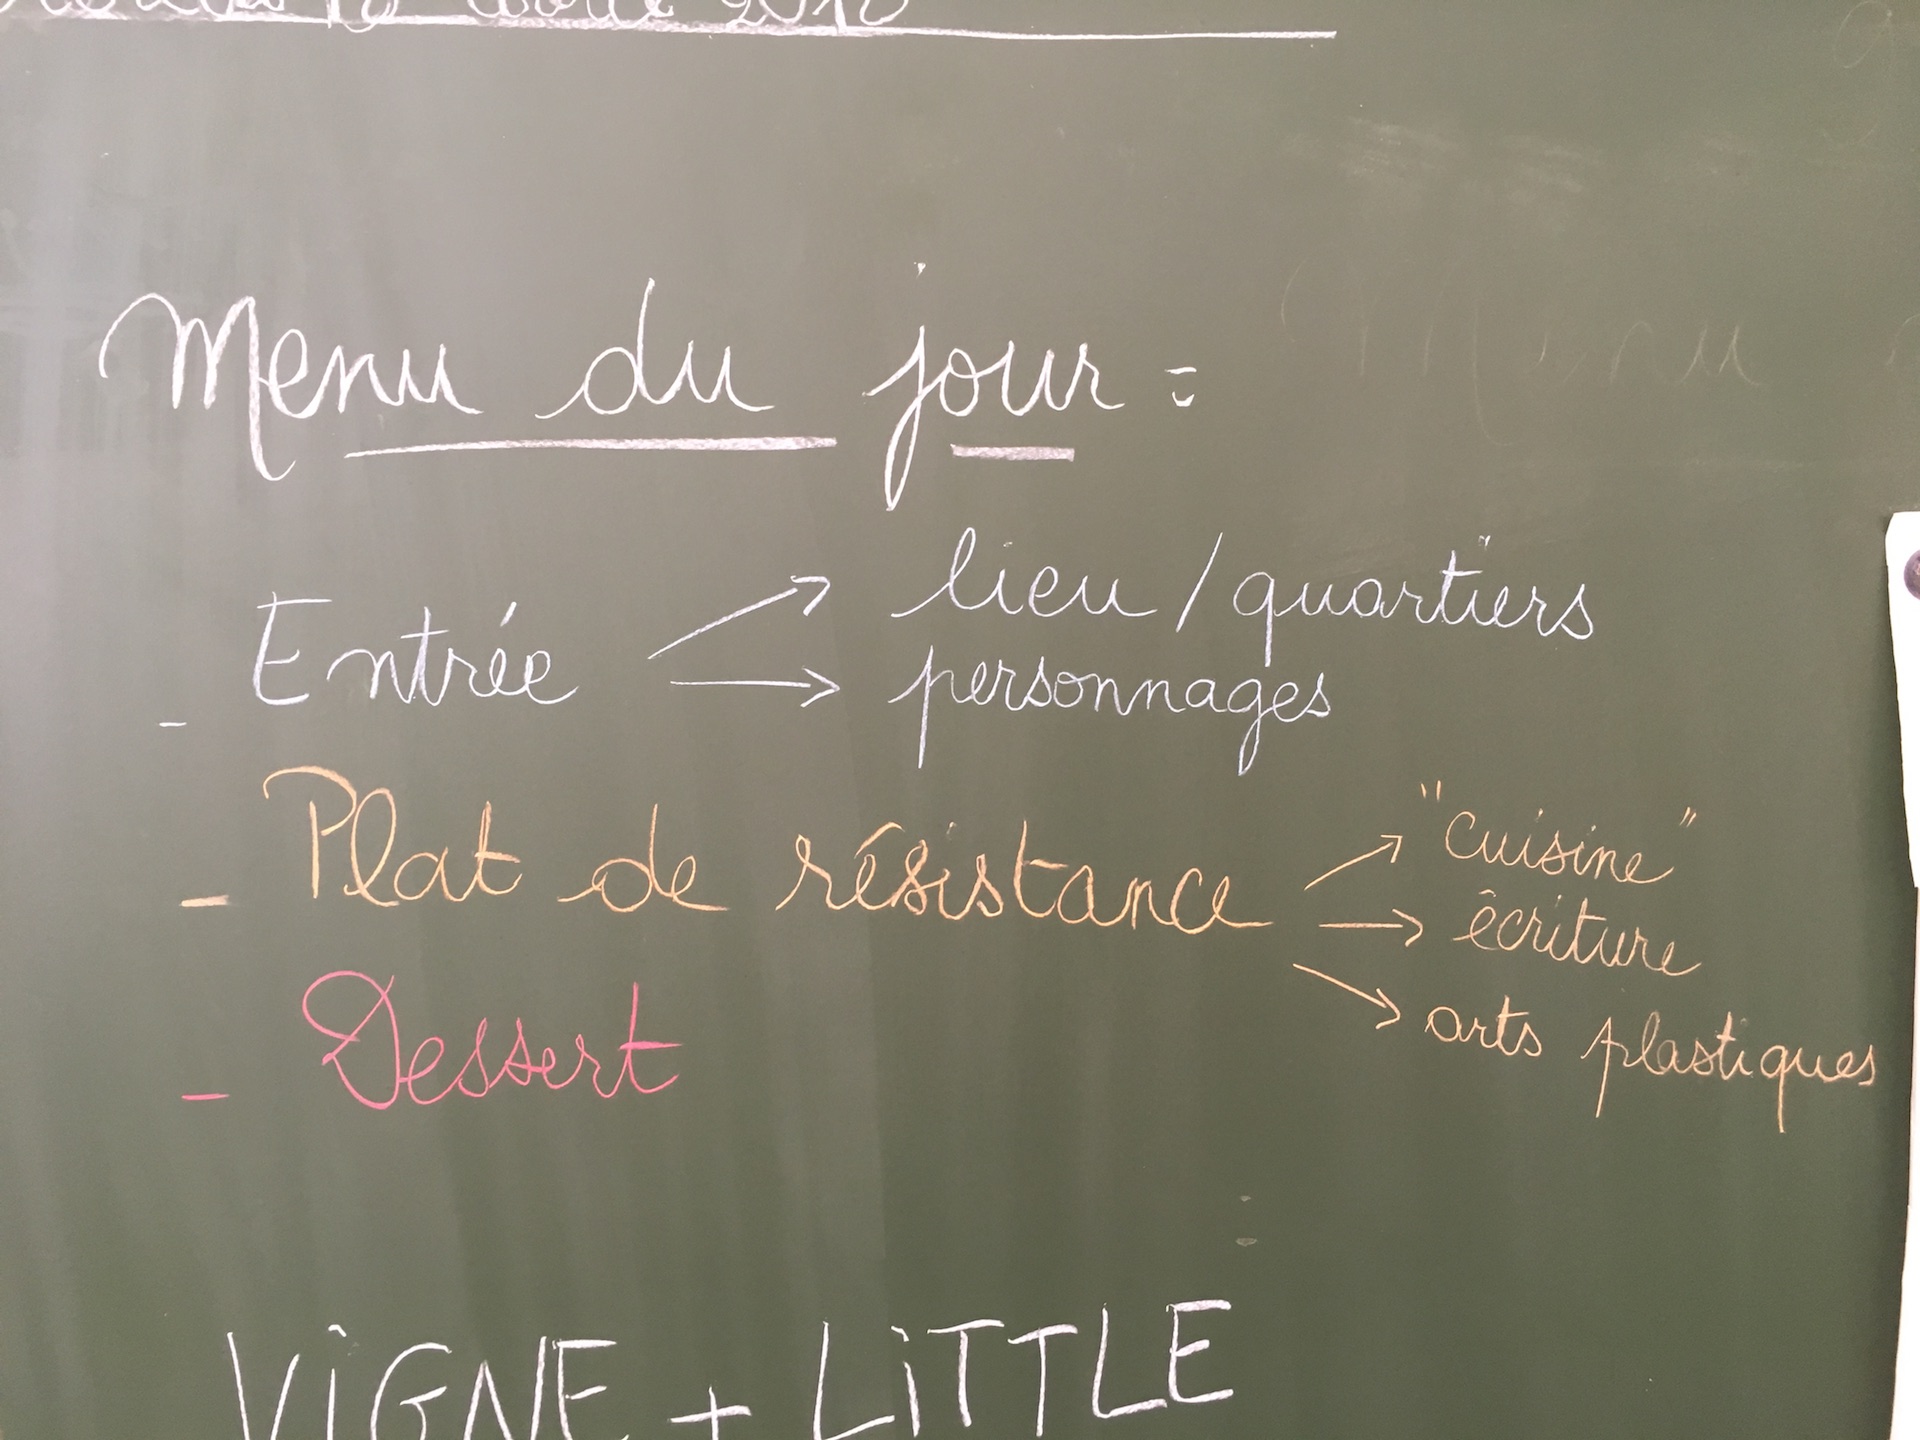 2018
Menu du jour :
- Entrée → lieu / quartiers
→ personnages
- Plat de résistance → "cuisine"
→ écriture
→ arts plastiques
- Dessert
ViGNE + LiTTLE